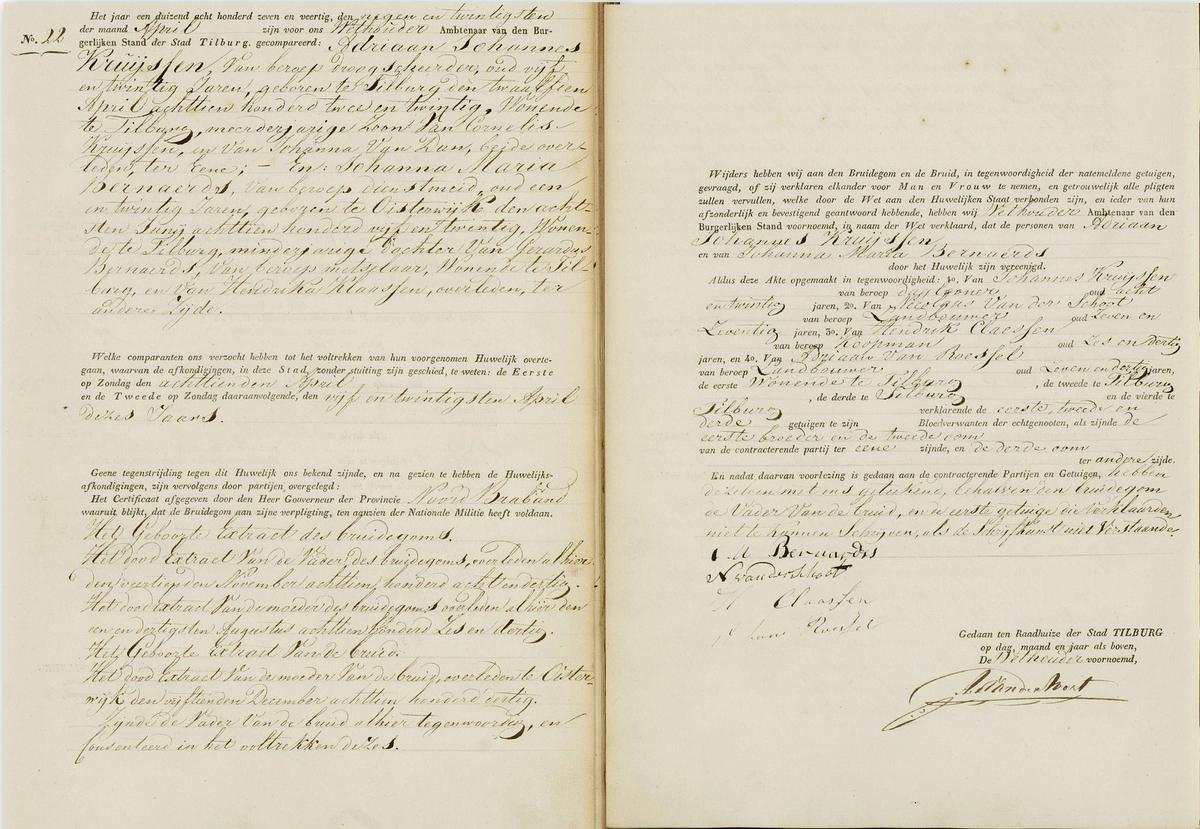 No. 22
Het jaar een duizend acht honderd zeven en veertig, den negen en twintigsten
der maand April zijn voor ons Wethouder Ambtenaar van den Bur-
gerlijken Stand der Stad Tilburg, gecompareerd: Adriaan Johannes
Kruijssen, Van beroep droogscheerder, oud vijf
en twintig Jaren, geboren te Tilburg den twaalften
April achttien honderd twee en twintig, Wonende
te Tilburg, meerderjarige Zoon Van Cornelis
Kruijssen, en Van Johanna Van Dun, beide over-
leden, ter Eene; – En: Johanna Maria
Bernaerds, Van beroep dienstmeid, oud een
en twintig Jaren, geboren te Oisterwijk den acht-
sten Junij achttien honderd vijf en twintig, Wonen-
de te Tilburg, minderjarige Dochter Van Gerardus
Bernaerds, Van beroep metselaar, Wonende te Til-
burg, en Van Hendrika Klaassen, overleden, ter
andere Zijde.
Welke comparanten ons verzocht hebben tot het voltrekken van hun voorgenomen Huwelijk overte-
gaan, waarvan de afkondigingen, in deze Stad, zonder stuiting zijn geschied, te weten: de Eerste
op Zondag den achttienden April
en de Tweede op Zondag daaraanvolgende, den vijf en twintigsten April
dezes Jaars.
Geene tegenstrijding tegen dit Huwelijk ons bekend zijnde, en na gezien te hebben de Huwelijks-
afkondigingen, zijn vervolgens door partijen overgelegd:
Het Certificaat afgegeven door den Heer Gouverneur der Provincie Noord Braband
waaruit blijkt, dat de Bruidegom aan zijne verpligting, ten aanzien der Nationale Militie heeft voldaan.
Het Geboorte Extract des bruidegoms.
Het dood Extract Van de Vader des bruidegoms, overleden alhier
den veertienden November achttien honderd acht en dertig.
Het dood Extract Van de moeder des bruidegoms overleden alhier den
een en dertigsten Augustus achttien honderd Zes en dertig.
Het Geboorte Extract Van de bruid.
Het dood Extract Van de moeder Van de bruid, overleden te Oister-
wijk den vijftienden December achttien honderd dertig.
Zijnde de Vader Van de bruid alhier tegenwoordig, en
Consenteerd in het voltrekken dezes.
Wijders hebben wij aan den Bruidegom en de Bruid, in tegenwoordigheid der natemeldene getuigen,
gevraagd, of zij verklaren elkander voor Man en Vrouw te nemen, en getrouwelijk alle pligten
zullen vervullen, welke door de Wet aan den Huwelijken Staat verbonden zijn, en ieder van hun
afzonderlijk en bevestigend geantwoord hebbende, hebben wij Wethouder Ambtenaar van den
Burgerlijken Stand voornoemd, in naam der Wet verklaard, dat de personen van Adriaan
Johannes Kruijssen
en van Johanna Maria Bernaerds
door het Huwelijk zijn vereenigd.
Aldus deze Akte opgemaakt in tegenwoordigheid: 1o. Van Johannes Kruijssen
van beroep oud acht
en twintig jaren, 2o. Van Nicolaas Van der Schoot
van beroep Landbouwer oud Zeven en
Zeventig jaren, 3o. Van Hendrik Claessen
van beroep Koopman oud Zes en dertig
jaren, en 4o. Van Adriaan Van Roessel
van beroep Landbouwer oud Zeven en dertig jaren,
de eerste Wonende te Tilburg, de tweede te Tilburg
, de derde te Tilburg en de vierde te
Tilburg verklarende de eerste, tweede en
derde getuigen te zijn Bloedverwanten der echtgenooten, als zijnde de
eerste broeder en de tweede oom
van de contracterende partij ter eene zijnde, en de derde oom
ter andere zijde.
En nadat daarvan voorlezing is gedaan aan de contracterende Partijen en Getuigen, hebben
dezelven met ons geteekend, behalven den bruidegom
de Vader Van de bruid, en de eerste getuige die Verklaarden
niet te kunnen Schrijven, als de Schrijfkunst niet Verstaande
J M Bernaards
N van der Schoot
H Claassen
van Roessel
Gedaan ten Raadhuize der Stad TILBURG
op dag, maand en jaar als boven,
De Wethouder voornoemd,